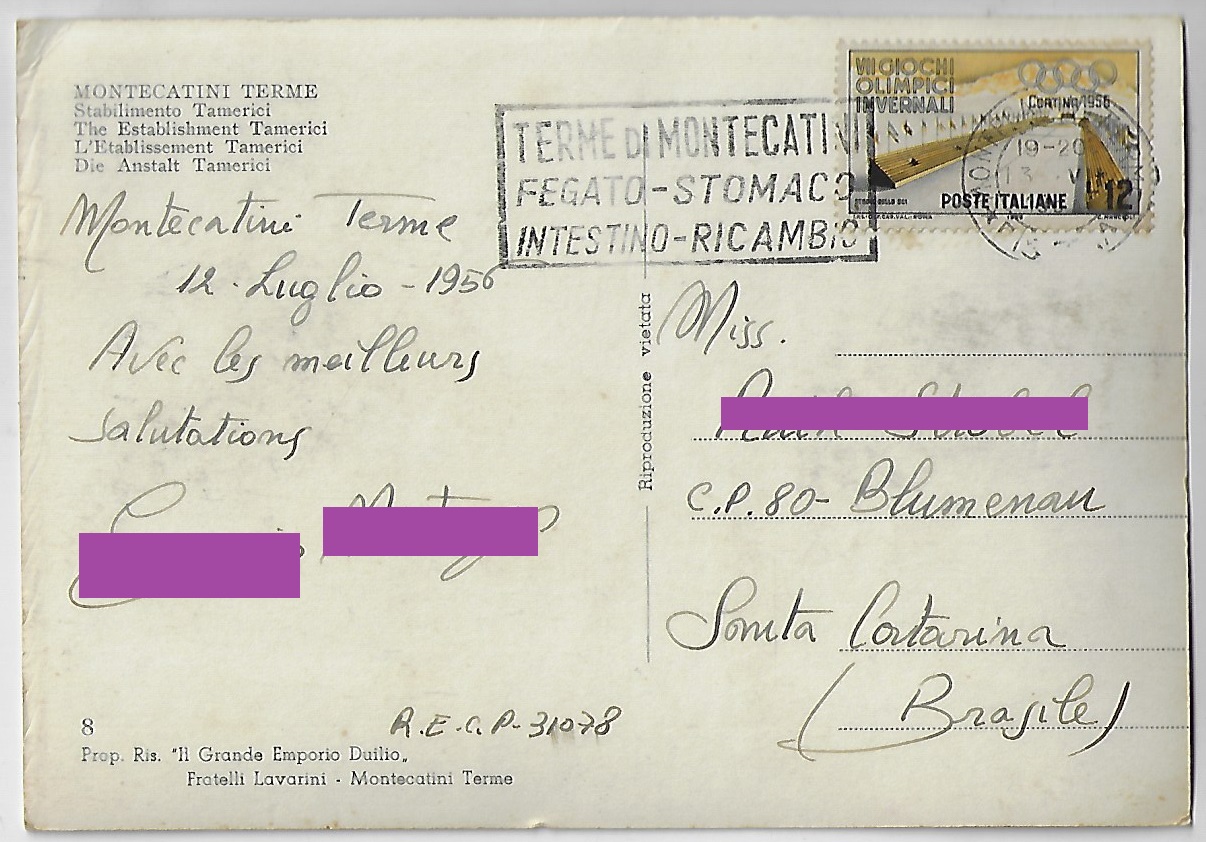 MONTECATINI TERME
Stabilimento Tamerici
The Establishment Tamerici
L'Etablissement Tamerici
Die Anstalt Tamerici
Montecatini Terme
12 Luglio - 1956
Avec les meilleurs
salutations
8
R.E.C.P-31078
Prop. Ris. "Il Grande Emporio Duilio„
Fratelli Lavarini - Montecatini Terme
TERME DI MONTECATINI
FEGATO-STOMACO
INTESTINO-RICAMBIO
VII GIOCHI
OLIMPICI
INVERNALI
CORTINA 1956
19-20
POSTE ITALIANE 12
Riproduzione vietata
Miss.
C.P. 80- Blumenau
Santa Catarina
(Brasile)